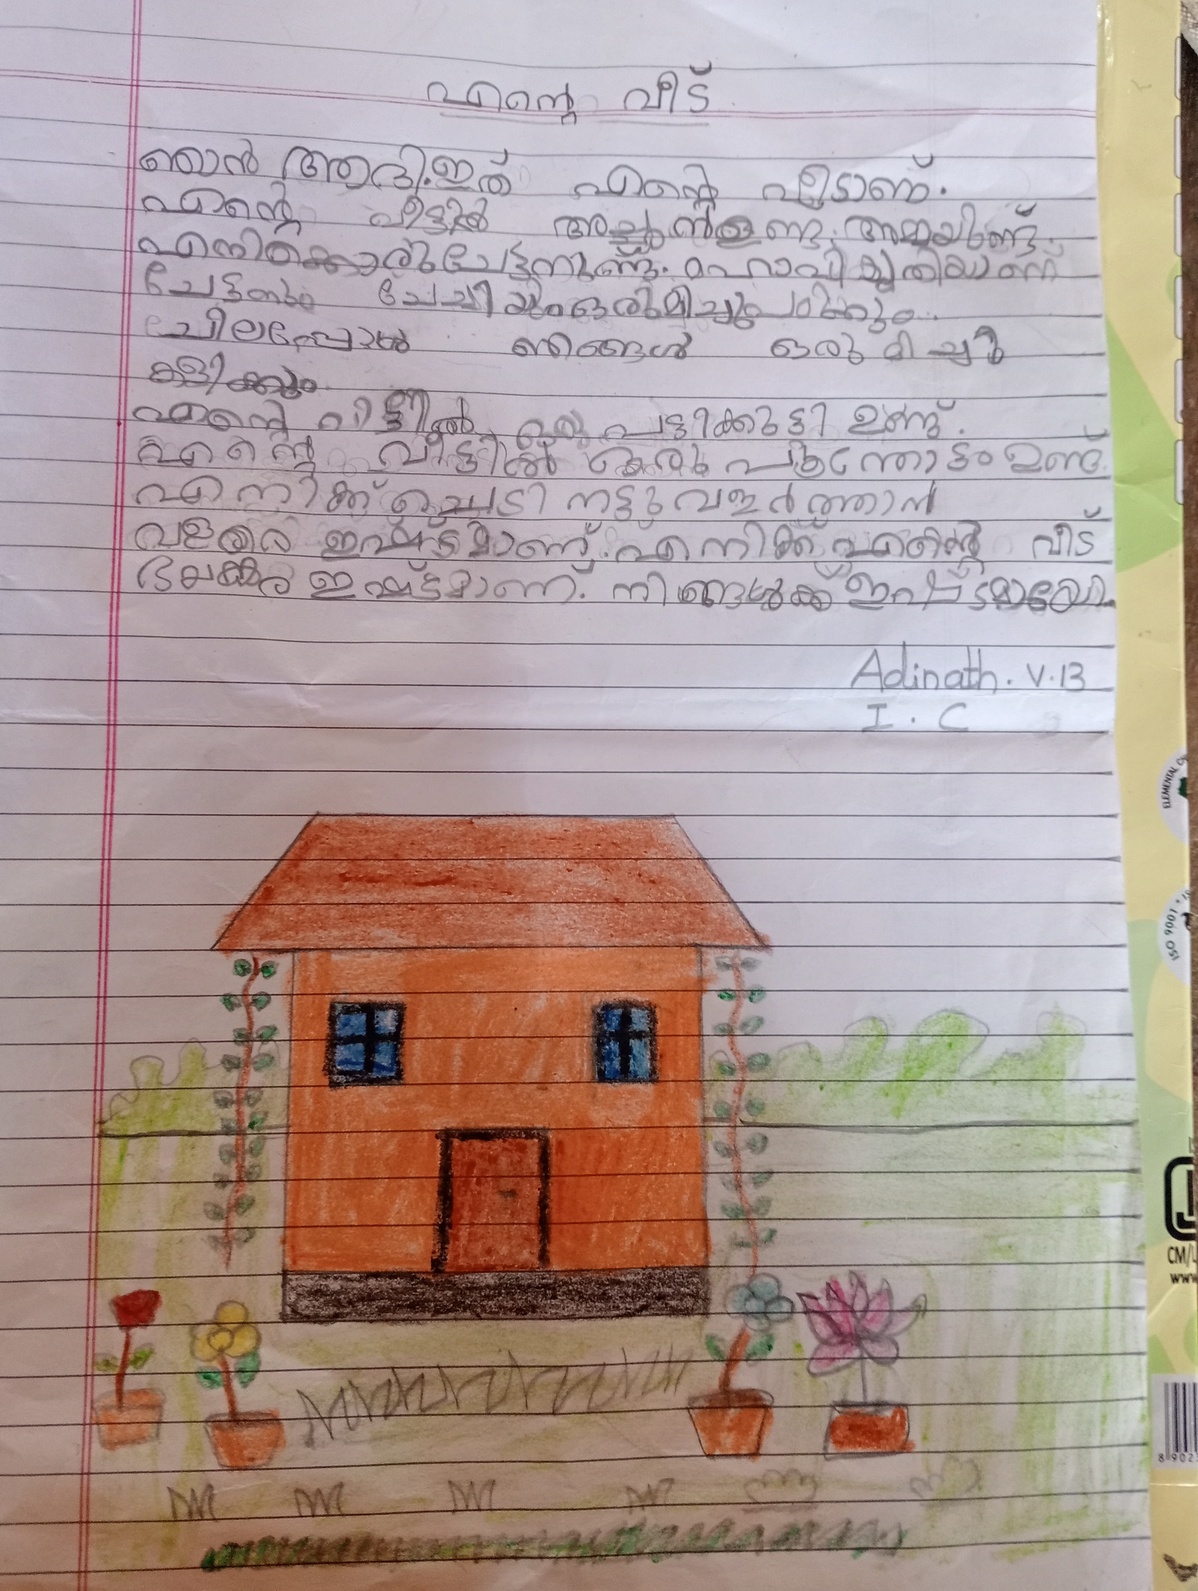 എന്റെ വീട്
ഞാൻ ആദി. ഇത് എന്റെ വീടാണ്.
എന്റെ വീട്ടിൽ അച്ഛനുണ്ട്. അമ്മയുണ്ട്.
എനിക്കൊരു ചേട്ടനുണ്ട്. മഹാവികൃതിയാണ്
ചേട്ടനും ചേച്ചിയും ഒരുമിച്ചു പഠിക്കും.
ചിലപ്പോൾ ഞങ്ങൾ ഒരുമിച്ചു
കളിക്കും
എന്റെ വീട്ടിൽ ഒരു പട്ടിക്കുട്ടി ഉണ്ട്.
എന്റെ വീട്ടിൽ ഒരു പൂന്തോട്ടം ഉണ്ട്
എനിക്ക് ചെടി നട്ടുവളർത്താൻ
വളരെ ഇഷ്ടമാണ്. എനിക്ക് എന്റെ വീട്
ഭയങ്കര ഇഷ്ടമാണ്. നിങ്ങൾക്ക് ഇഷ്ടമായോ
Adinath. V.B
I. C
ELEMENTAL
ISO 9001
CM/L
www
8 902